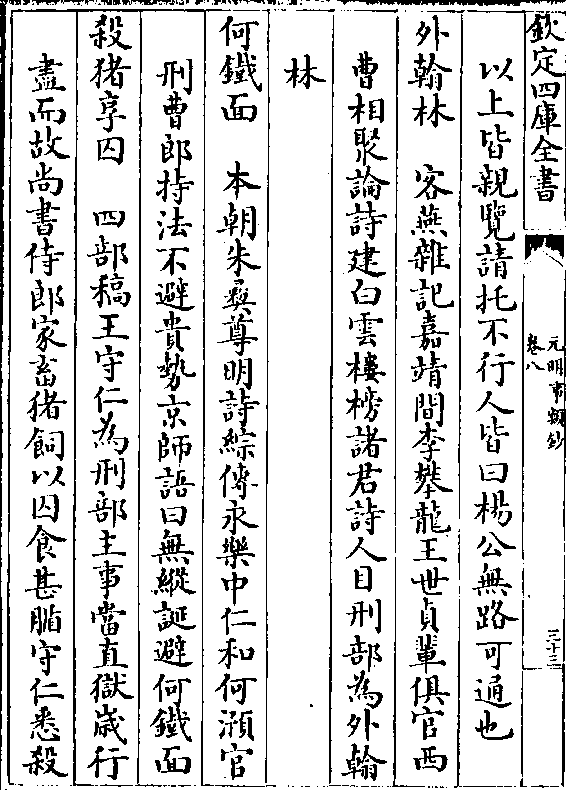 欽定四庫全書
元明事類鈔
卷八
三十三
以上皆親覽請托不行人皆曰楊公無路可通也
外翰林　客燕雜記嘉靖間李攀龍王世貞輩俱官西
曹相聚論詩建白雲樓榜諸君詩人目刑部為外翰
林
何鐵面　本朝朱彝尊明詩綜傳永樂中仁和何澬官
刑曹郎持法不避貴勢京師語曰無縱誕避何鐵面
殺猪享囚　四部稿王守仁為刑部主事當直獄歳行
盡而故尚書侍郎家畜猪飼以囚食甚腯守仁悉殺